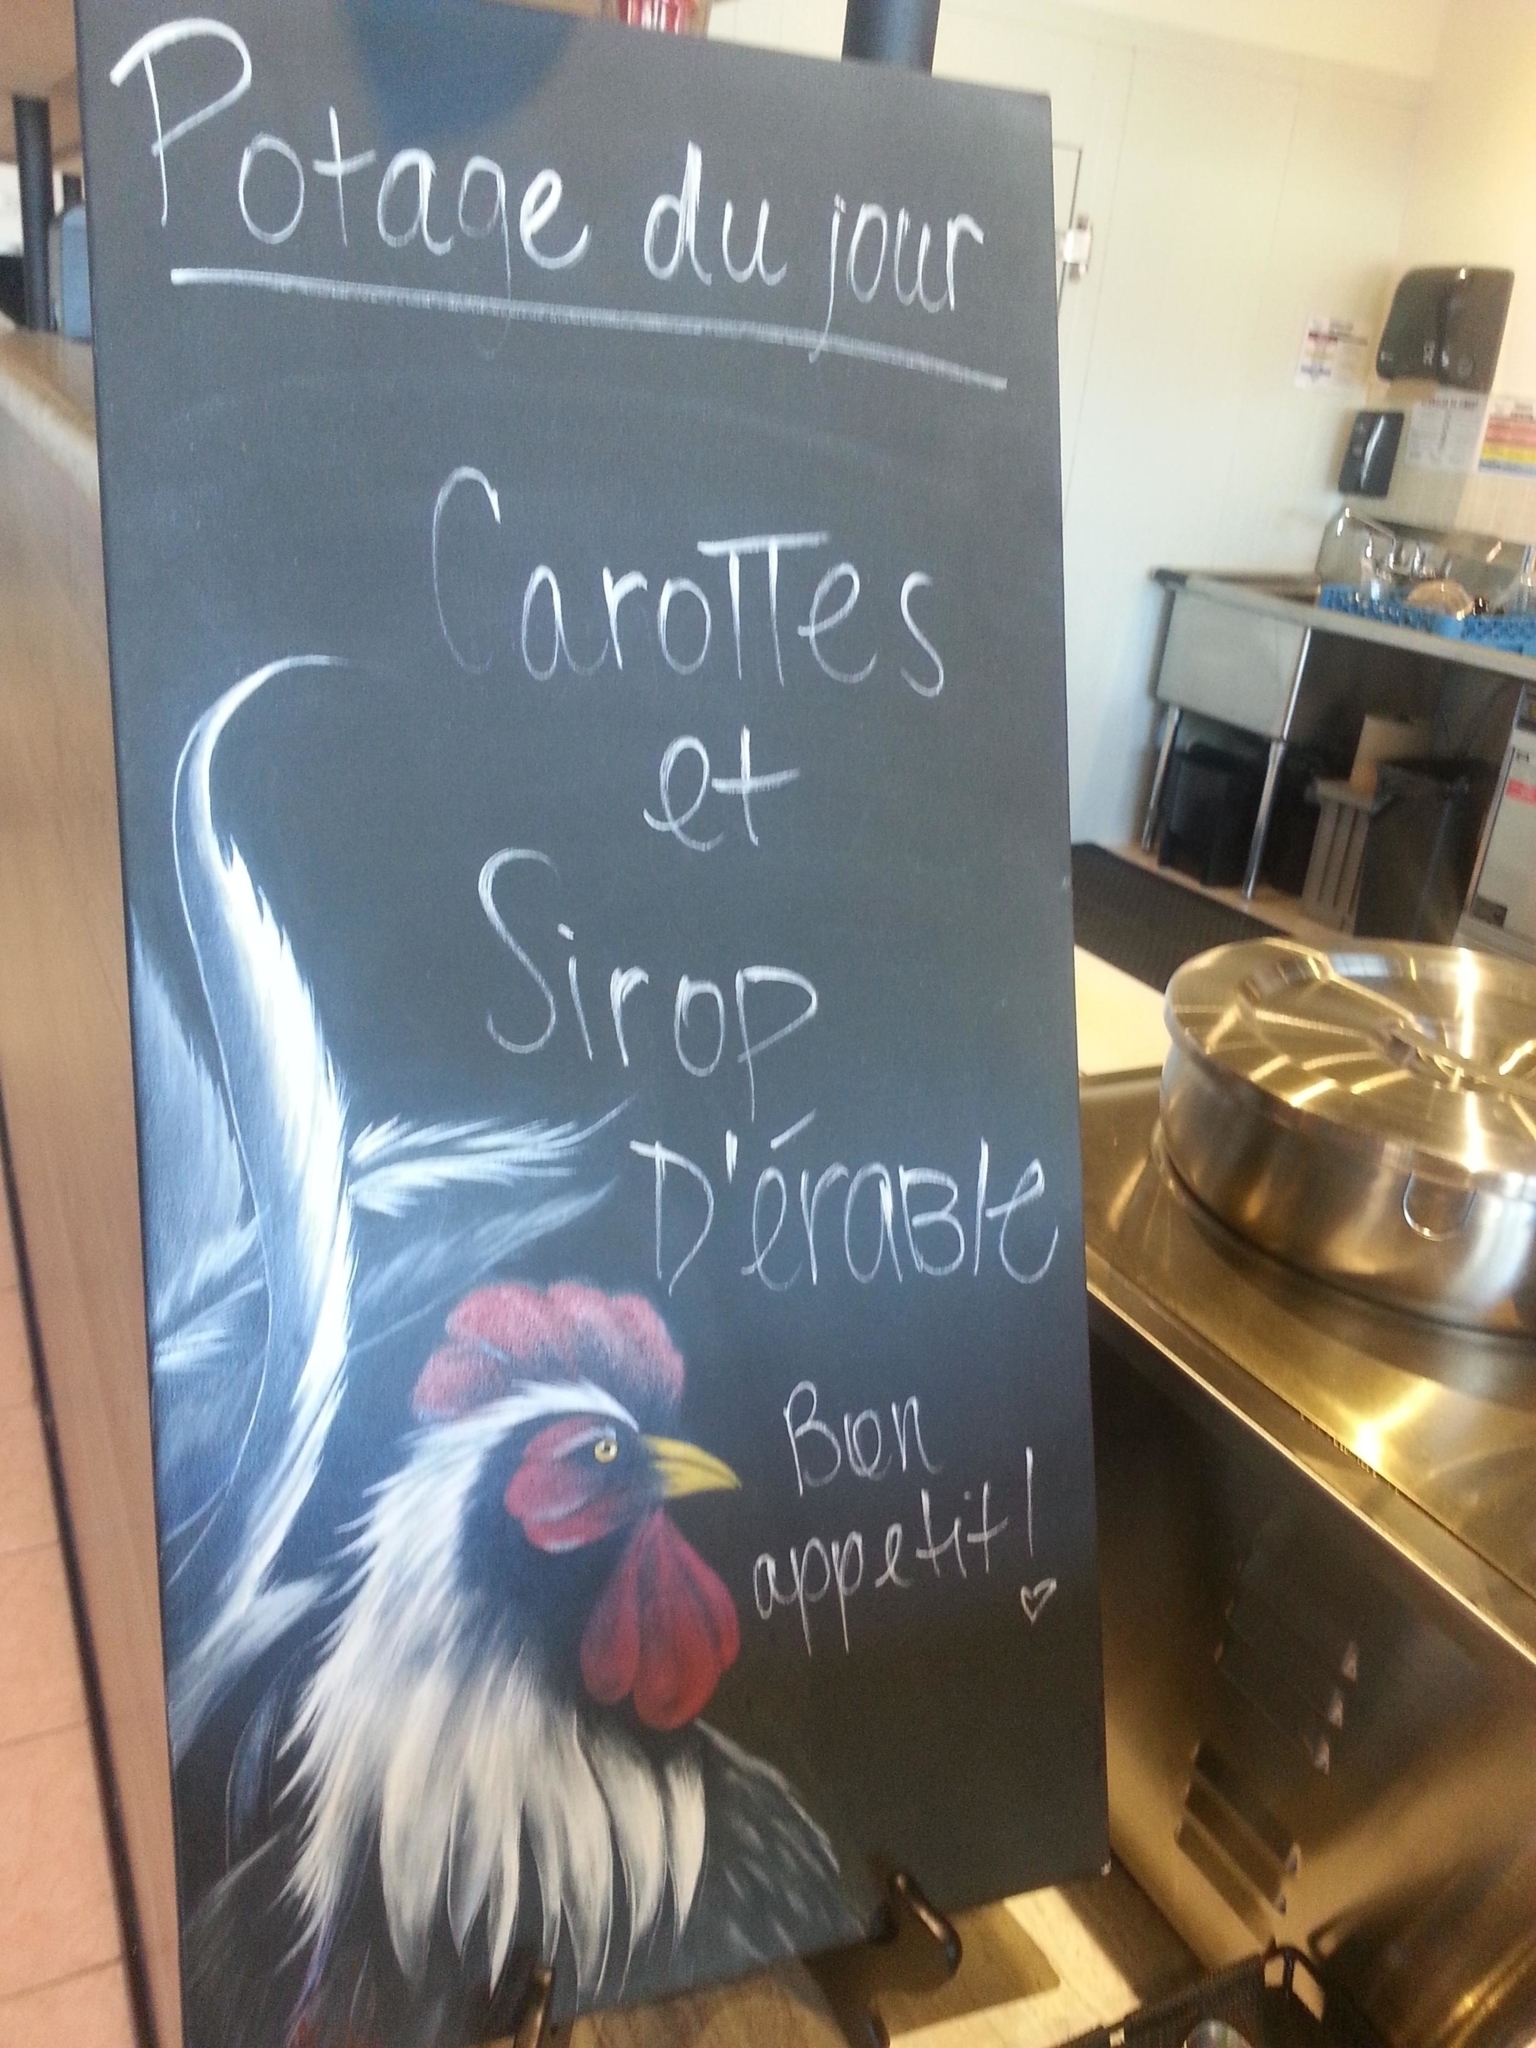 Potage du jour
Carottes
et
Sirop
D'érable
Bon
appetit!